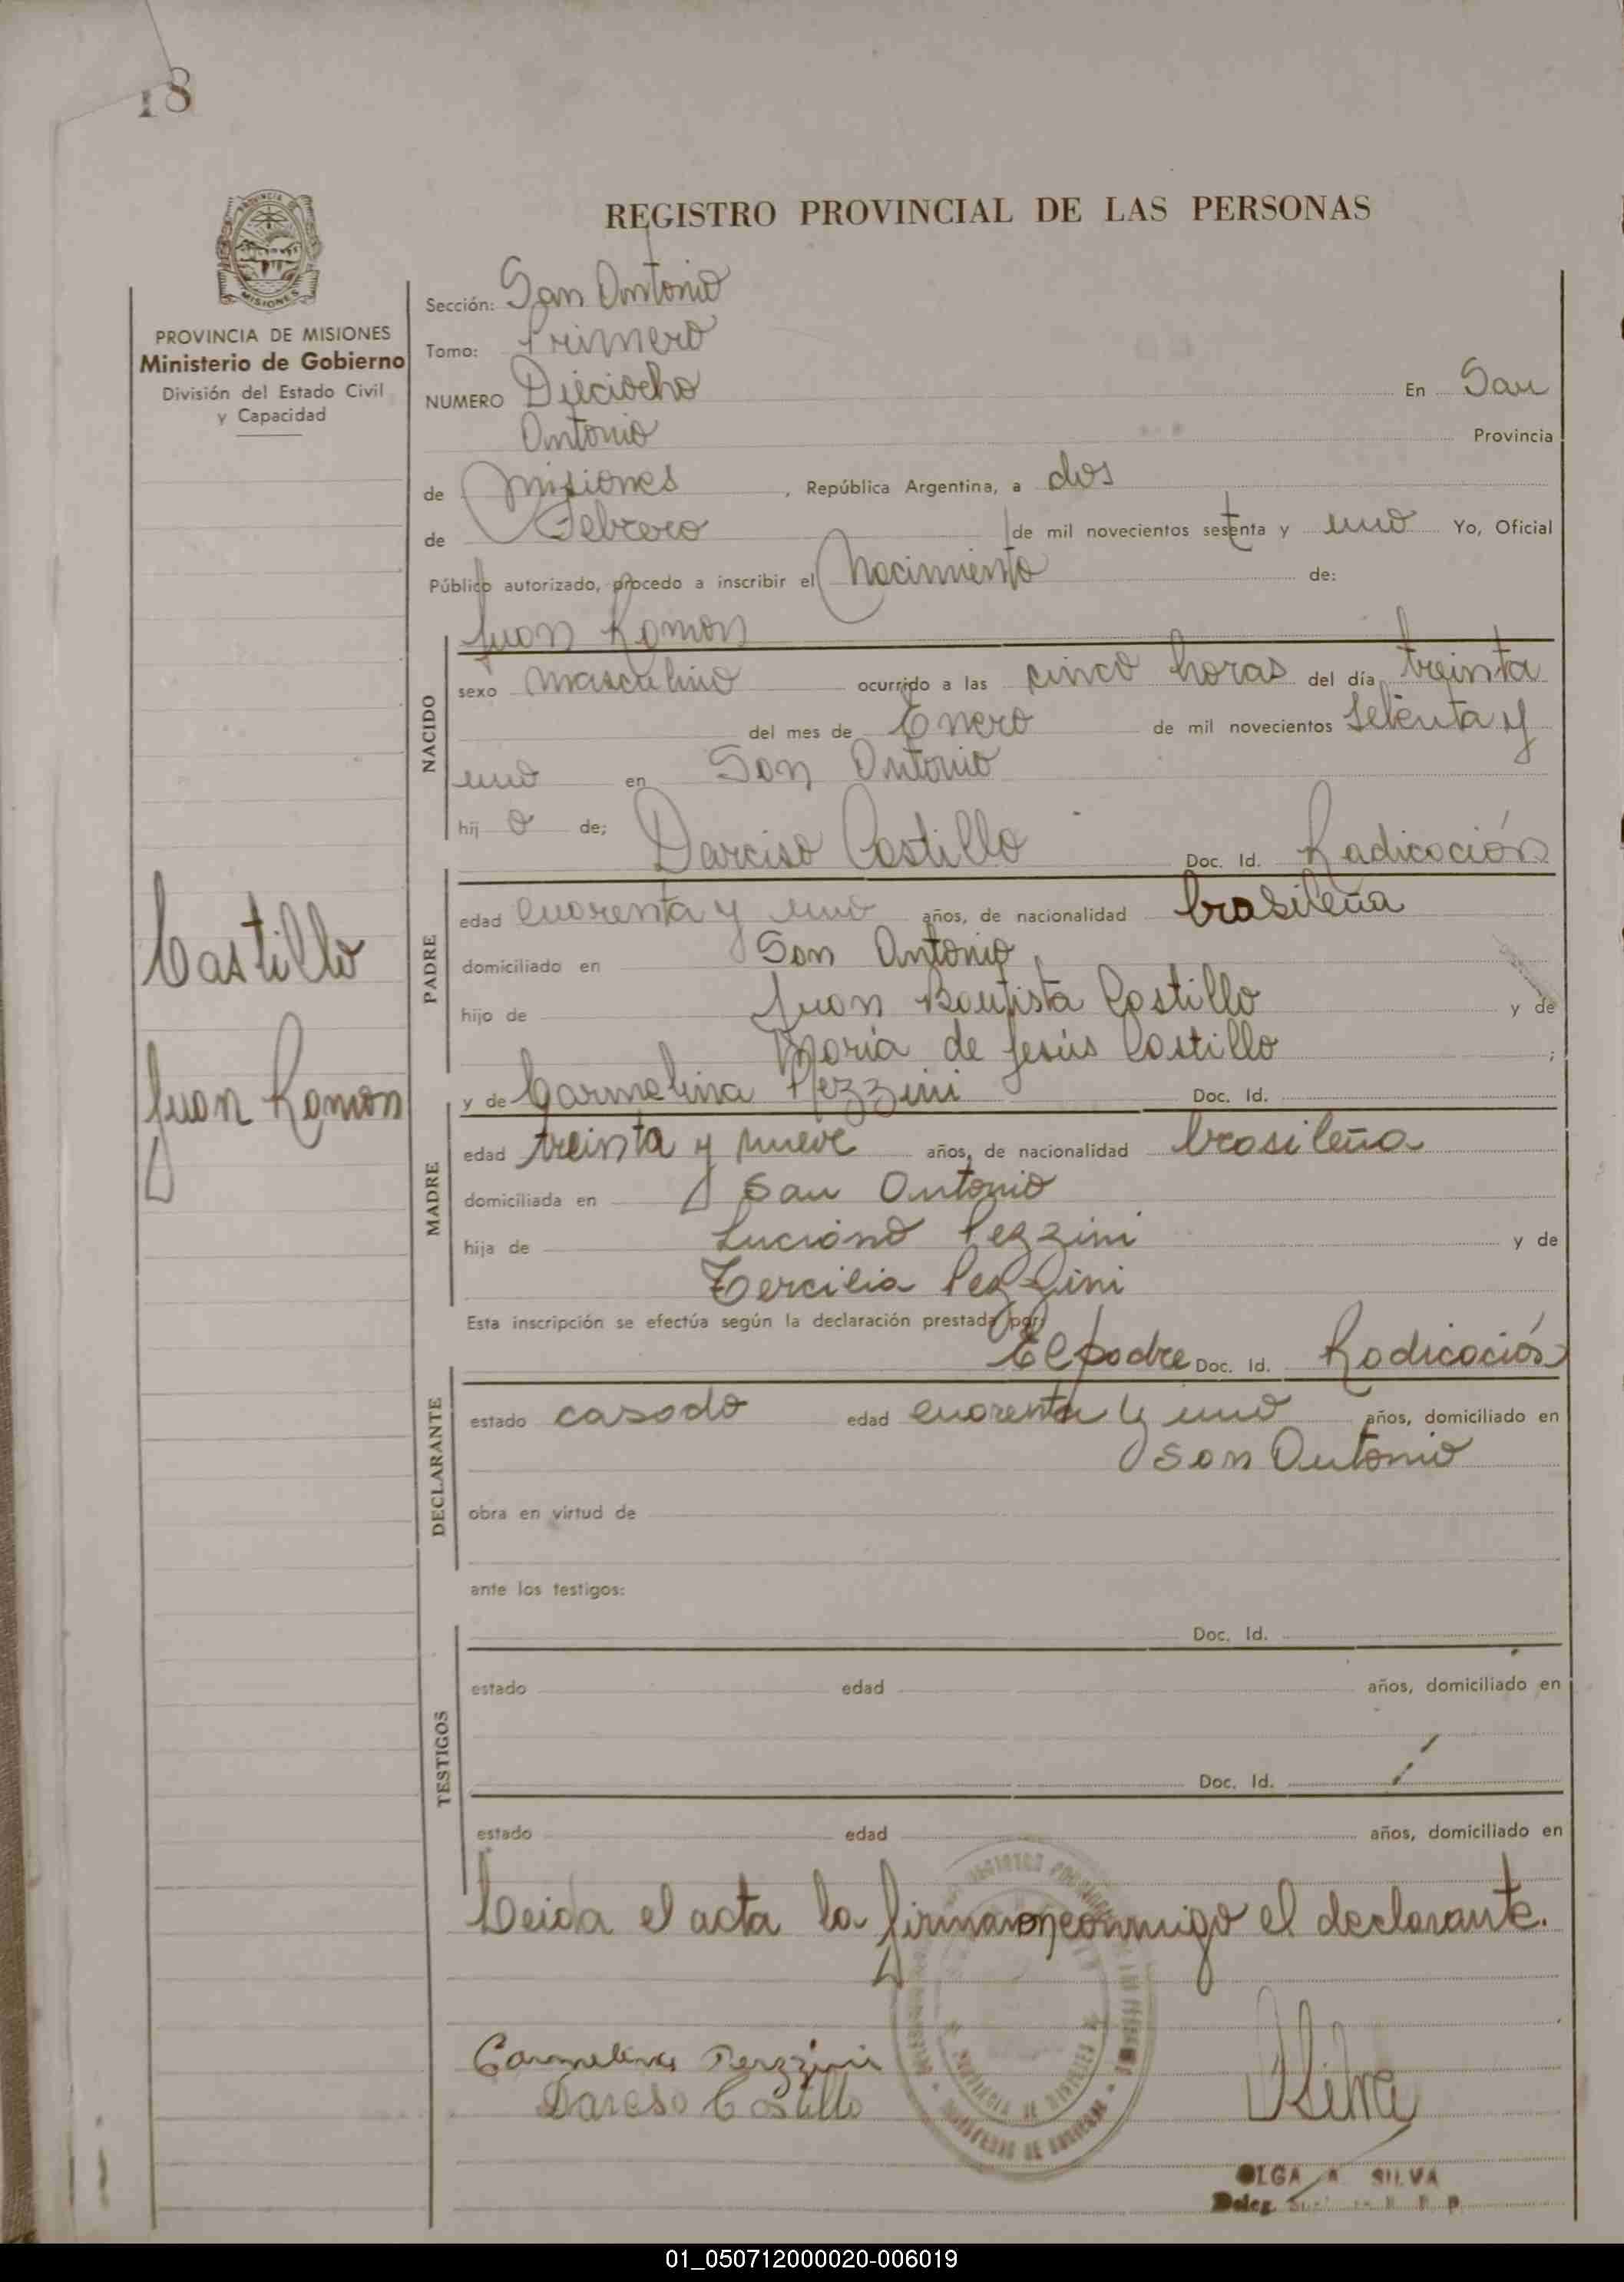 18
REGISTRO PROVINCIAL DE LAS PERSONAS
PROVINCIA DE MISIONES
Ministerio de Gobierno
División del Estado Civil
y Capacidad
Sección: San Antonio
Tomo: Primero
NUMERO Dieciocho En San
Antonio Provincia
de Misiones , República Argentina, a dos
de Febrero de mil novecientos setenta y uno Yo, Oficial
Público autorizado, procedo a inscribir el Nacimiento de:
Juan Ramon
NACIDO
sexo masculino ocurrido a las cinco horas del día treinta
del mes de Enero de mil novecientos Setenta y
uno en San Antonio
hij o de; Darciso Castillo Doc. Id. Radicación
PADRE
edad cuarenta y uno años, de nacionalidad brasileña
domiciliado en San Antonio
hijo de Juan Bautista Castillo y de
Maria de Jesús Castillo ;
y de Carmelina Pezzini Doc. Id.
MADRE
edad treinta y nueve años, de nacionalidad brasileña
domiciliada en San Antonio
hija de Luciano Pezzini y de
Tercilia Pezzini
Castillo
Juan Ramon
Esta inscripción se efectúa según la declaración prestada por:
El padre Doc. Id. Radicación
DECLARANTE
estado casado edad cuarenta y uno años, domiciliado en
San Antonio
obra en virtud de
ante los testigos:
Doc. Id.
TESTIGOS
estado edad años, domiciliado en
Doc. Id.
estado edad años, domiciliado en
Leida el acta la firman conmigo el declarante.
Carmelina Perzzini
Dareso Castillo
OLGA A. SILVA
Deleg.
MISIONES
01_050712000020-006019